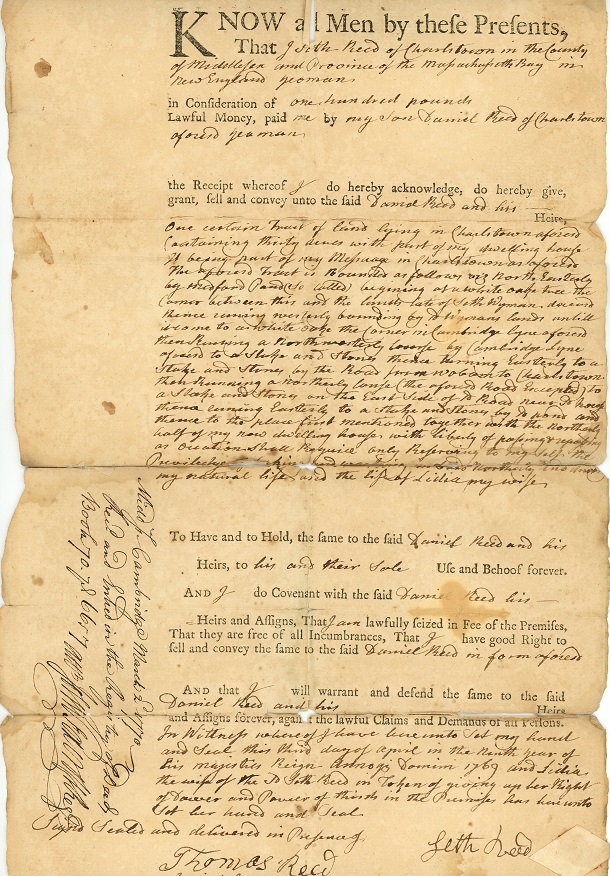 KNOW all Men by these Presents,
That I Seth Reed of Charlstown in the County
of Middlesex and Province of the Massachusetts Bay in
New England yeoman
in Consideration of one hundred pounds
Lawful Money, paid me by my Son Daniel Reed of Charlstown
aforesd yeoman
the Receipt whereof I do hereby acknowledge, do hereby give,
grant, sell and convey unto the said Daniel Reed and his
Heirs,
One certain Tract of land lying in Charlstown aforesd
Containing thirty acres with part of my dwelling house
it being part of my Message in Charlstown aforesd
The aforesd Tract is Bounded as follows viz North Easterly
by Bedford Pond (so called) begining at a white oake tree the
Corner between this and the limits late of Seth Wyman deceasd
thence runing westerly bounding by sd Wymans lands untill
it come to a white oake the Corner in Cambridge Lyne aforesd
then Runing a Northwesterly Course by Cambridge Lyne
aforesd to a Stake and Stones thence turning Easterly to a
Stake and Stones by the Road from woborn to Charlstown
then Running a northerly Course (the aforesd Road Excepted) to
a Stake and Stones on the East Side of sd Road near sd house
thence runing Easterly to a Stake and Stones by sd pond and
thence to the place first mentioned together with the Northerly
half of my now dwelling house with liberty of passing & repassing
as Ocation Shall Require only Reserving to my Self the
Priviledge of in sd Northerly
my natural life and the life of Lidia my wife
To Have and to Hold, the same to the said Daniel Reed and his
Heirs, to his and their Sole Use and Behoof forever.
AND I do Covenant with the said Daniel Reed his
Heirs and Assigns, That I am lawfully seized in Fee of the Premises,
That they are free of all Incumbrances, That I have good Right to
sell and convey the same to the said Daniel Reed in form aforesd
AND that I will warrant and defend the same to the said
Daniel Reed and his Heirs
and Assigns forever, against the lawful Claims and Demands of all Persons.
In Wittness whereof I have hereunto Set my hand
and Seal this third day of April in the Ninth year of
his majestys Reign Annoq Domini 1769 and Lidia
the wife of the sd Seth Reed in Token of giving up her Right
of Dower and Power of thirds in the Premises has hereunto
Set her hand and Seal
Signd Sealed and delivered in Presence of
Seth Reed
Thomas Reed
Midd ss Cambridge March 2d 1770
Recd and Entred in the Registry of Deeds
Book 70